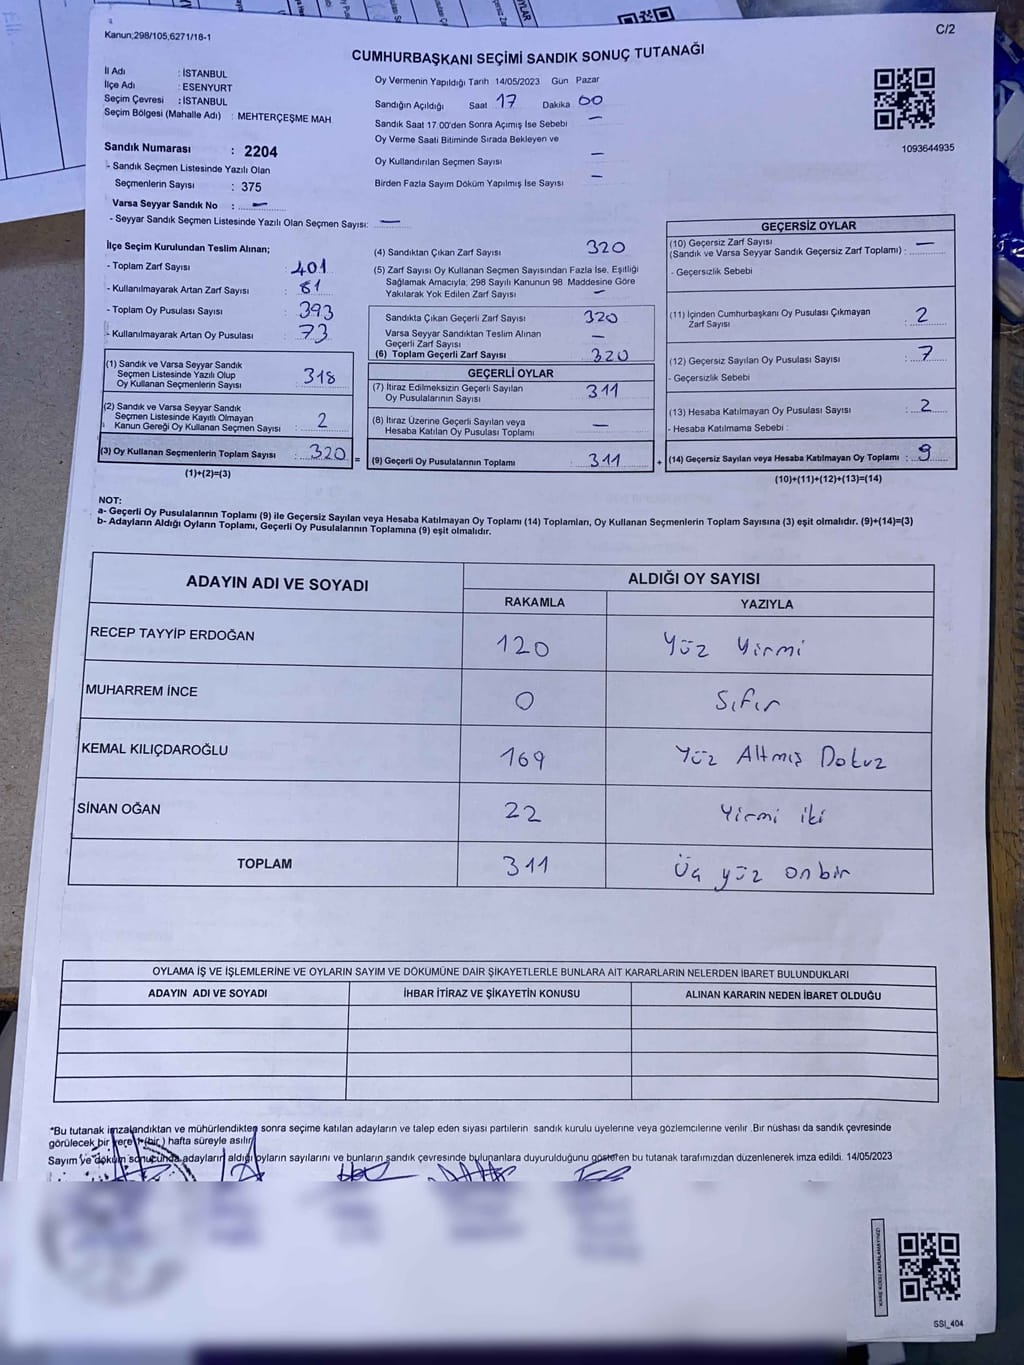 Kanun;298/105,6271/18-1
C/2
CUMHURBAŞKANI SEÇİMİ SANDIK SONUÇ TUTANAĞI
İl Adı : İSTANBUL
İlçe Adı : ESENYURT
Seçim Çevresi : İSTANBUL
Seçim Bölgesi (Mahalle Adı) : MEHTERÇEŞME MAH.
Sandık Numarası : 2204
- Sandık Seçmen Listesinde Yazılı Olan
Seçmenlerin Sayısı : 375
Varsa Seyyar Sandık No : —
- Seyyar Sandık Seçmen Listesinde Yazılı Olan Seçmen Sayısı: —
Oy Vermenin Yapıldığı Tarih 14/05/2023 Gün Pazar
Sandığın Açıldığı Saat 17 Dakika 00
Sandık Saat 17 00'den Sonra Açımış İse Sebebi —
Oy Verme Saati Bitiminde Sırada Bekleyen ve
Oy Kullandırılan Seçmen Sayısı —
Birden Fazla Sayım Döküm Yapılmış İse Sayısı —
1093644935
İlçe Seçim Kurulundan Teslim Alınan;
- Toplam Zarf Sayısı : 401
- Kullanılmayarak Artan Zarf Sayısı : 81
- Toplam Oy Pusulası Sayısı : 393
- Kullanılmayarak Artan Oy Pusulası : 73
(1) Sandık ve Varsa Seyyar Sandık
Seçmen Listesinde Yazılı Olup
Oy Kullanan Seçmenlerin Sayısı : 318
(2) Sandık ve Varsa Seyyar Sandık
Seçmen Listesinde Kayıtlı Olmayan
Kanun Gereği Oy Kullanan Seçmen Sayısı : 2
(3) Oy Kullanan Seçmenlerin Toplam Sayısı : 320 =
(1)+(2)=(3)
(4) Sandıktan Çıkan Zarf Sayısı 320
(5) Zarf Sayısı Oy Kullanan Seçmen Sayısından Fazla İse, Eşitliği
Sağlamak Amacıyla; 298 Sayılı Kanunun 98 Maddesine Göre
Yakılarak Yok Edilen Zarf Sayısı —
Sandıkta Çıkan Geçerli Zarf Sayısı 320
Varsa Seyyar Sandıktan Teslim Alınan
Geçerli Zarf Sayısı —
(6) Toplam Geçerli Zarf Sayısı 320
GEÇERLİ OYLAR
(7) İtiraz Edilmeksizin Geçerli Sayılan
Oy Pusulalarının Sayısı 311
(8) İtiraz Üzerine Geçerli Sayılan veya
Hesaba Katılan Oy Pusulası Toplamı —
(9) Geçerli Oy Pusulalarının Toplamı 311 +
GEÇERSİZ OYLAR
(10) Geçersiz Zarf Sayısı
(Sandık ve Varsa Seyyar Sandık Geçersiz Zarf Toplamı) : —
- Geçersizlik Sebebi
(11) İçinden Cumhurbaşkanı Oy Pusulası Çıkmayan
Zarf Sayısı : 2
(12) Geçersiz Sayılan Oy Pusulası Sayısı : 7
- Geçersizlik Sebebi
(13) Hesaba Katılmayan Oy Pusulası Sayısı : 2
- Hesaba Katılmama Sebebi :
(14) Geçersiz Sayılan veya Hesaba Katılmayan Oy Toplamı : 9
(10)+(11)+(12)+(13)=(14)
NOT:
a- Geçerli Oy Pusulalarının Toplamı (9) ile Geçersiz Sayılan veya Hesaba Katılmayan Oy Toplamı (14) Toplamları, Oy Kullanan Seçmenlerin Toplam Sayısına (3) eşit olmalıdır. (9)+(14)=(3)
b- Adayların Aldığı Oyların Toplamı, Geçerli Oy Pusulalarının Toplamına (9) eşit olmalıdır.
ADAYIN ADI VE SOYADI
ALDIĞI OY SAYISI
RAKAMLA YAZIYLA
RECEP TAYYİP ERDOĞAN 120 Yüz Yirmi
MUHARREM İNCE 0 Sıfır
KEMAL KILIÇDAROĞLU 169 Yüz Altmış Dokuz
SİNAN OĞAN 22 Yirmi iki
TOPLAM 311 Üç yüz onbir
OYLAMA İŞ VE İŞLEMLERİNE VE OYLARIN SAYIM VE DÖKÜMÜNE DAİR ŞİKAYETLERLE BUNLARA AİT KARARLARIN NELERDEN İBARET BULUNDUKLARI
ADAYIN ADI VE SOYADI İHBAR İTİRAZ VE ŞİKAYETİN KONUSU ALINAN KARARIN NEDEN İBARET OLDUĞU
*Bu tutanak imzalandıktan ve mühürlendikten sonra seçime katılan adayların ve talep eden siyasi partilerin sandık kurulu üyelerine veya gözlemcilerine verilir .Bir nüshası da sandık çevresinde
görülecek bir yere 1 (bir ) hafta süreyle asılır.
Sayım ve döküm sonucunda adayların aldığı oyların sayılarını ve bunların sandık çevresinde bulunanlara duyurulduğunu gösteren bu tutanak tarafımızdan düzenlenerek imza edildi. 14/05/2023
KARE KODU KARALAMAYINIZ!
SSI_404